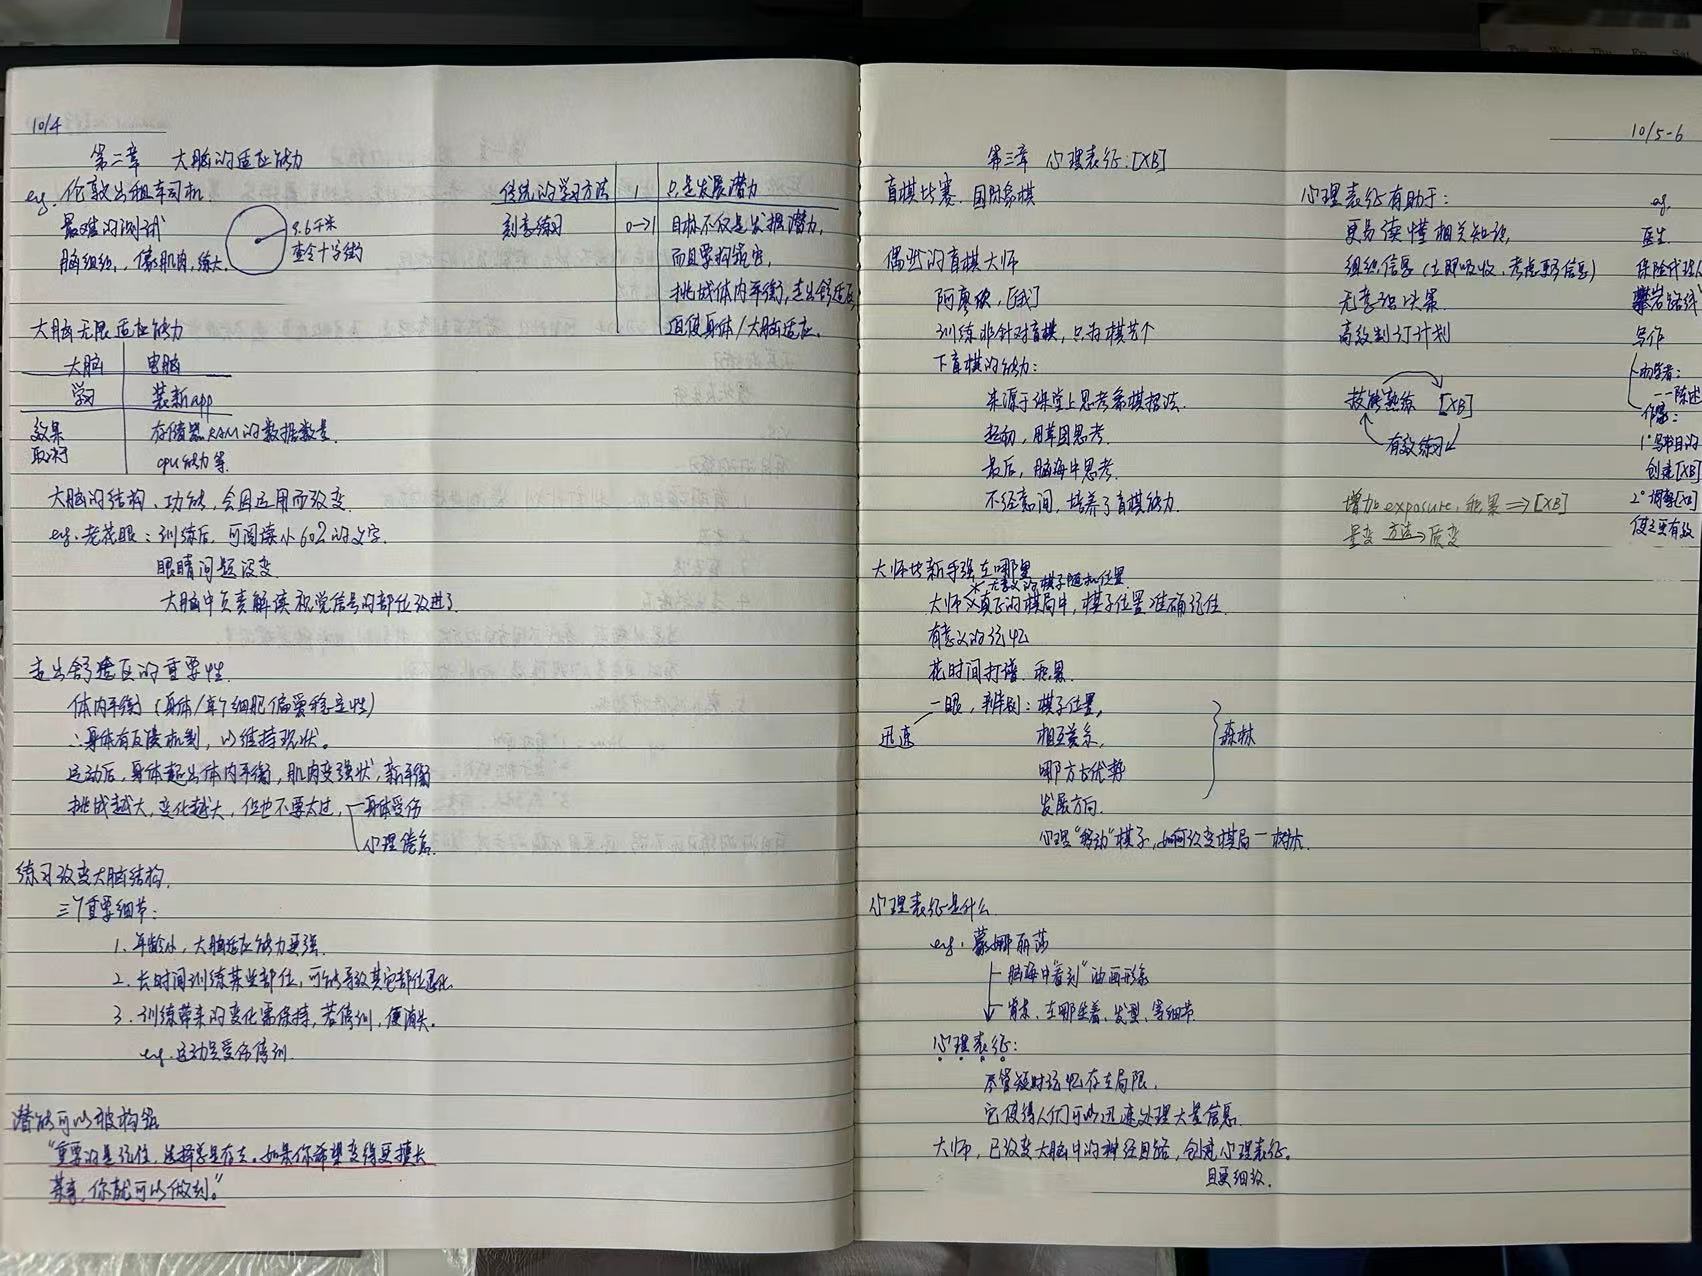 10/4
第二章 大脑的适应能力
eg. 伦敦出租车司机
最难的测试
脑组织，像肌肉，练大
9.6千米
查令十字街
传统的学习方法 1 只是发展潜力
刻意练习 0→1 目标不仅是发掘潜力，
而且要构筑它，
挑战体内平衡，走出舒适区
迫使身体/大脑适应。
大脑无限适应能力
大脑 电脑
学习 装新app
效果取决于 存储器RAM的数据数量
cpu能力等.
大脑的结构、功能，会因运用而改变
eg. 老花眼：训练后，可阅读小60%的文字
眼睛问题没变
大脑中负责解读视觉信号的部位改进了
走出舒适区的重要性
体内平衡（身体/单个细胞偏爱稳定性）
∴身体有反馈机制，以维持现状。
运动后，身体超出体内平衡，肌肉变强状，新平衡
挑战越大，变化越大，但也不要太过，身体受伤
心理倦怠
练习改变大脑结构
三个重要细节：
1、年龄小，大脑适应能力更强.
2、长时间训练某些部位，可能导致其它部位退化
3、训练带来的变化需保持，若停训，便消失。
eg. 运动员受伤停训
潜能可以被构筑
“重要的是记住，选择总是存在。如果你希望变得更擅长
某事，你就可以做到。”
10/5-6
第三章 心理表征：[XB]
盲棋比赛. 国际象棋
偶然的盲棋大师
阿廖欣，[俄]
训练非针对盲棋，只为棋艺个
下盲棋的能力：
来源于课堂上思考象棋招法.
起初，用草图思考.
最后，脑海中思考.
不经意间，培养了盲棋能力.
大师比新手强在哪里
* 无意义的棋子随机位置
大师 真正的棋局中，棋子位置准确记住
有意义的记忆
花时间打谱. 积累.
一眼，辨别：棋子位置，
迅速
相互关系，
哪方占优势
发展方向.
森林
心理“移动”棋子，如何改变棋局 — 树木
心理表征是什么
eg. 蒙娜丽莎
脑海中“看到”油画形象
背景、在哪坐着、发型、等细节
心理表征：
尽管短时记忆存在局限，
它使得人们可以迅速处理大量信息.
大师，已改变大脑中的神经回路，创建心理表征。
且更细致.
心理表征有助于：
更易读懂相关知识，
组织信息（立即吸收，考虑更多信息）
无意识决策
高效制订计划
技能熟练 [XB]
有效练习
增加exposure，积累⇒[XB]
量变 方法→质变
eg.
医生
保险代理人
攀岩路线
写作
初学者：
--陈述
作家：
1°写书目的
创建[XB]
2°调整[XB]
使之更有效